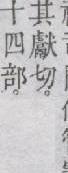 其獻切。
十四部。